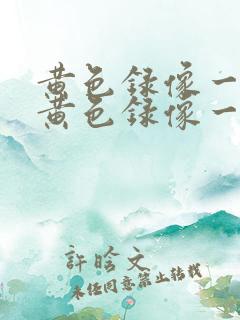 黄色録像一
黄色録像一
許晗文
未经同意禁止转载